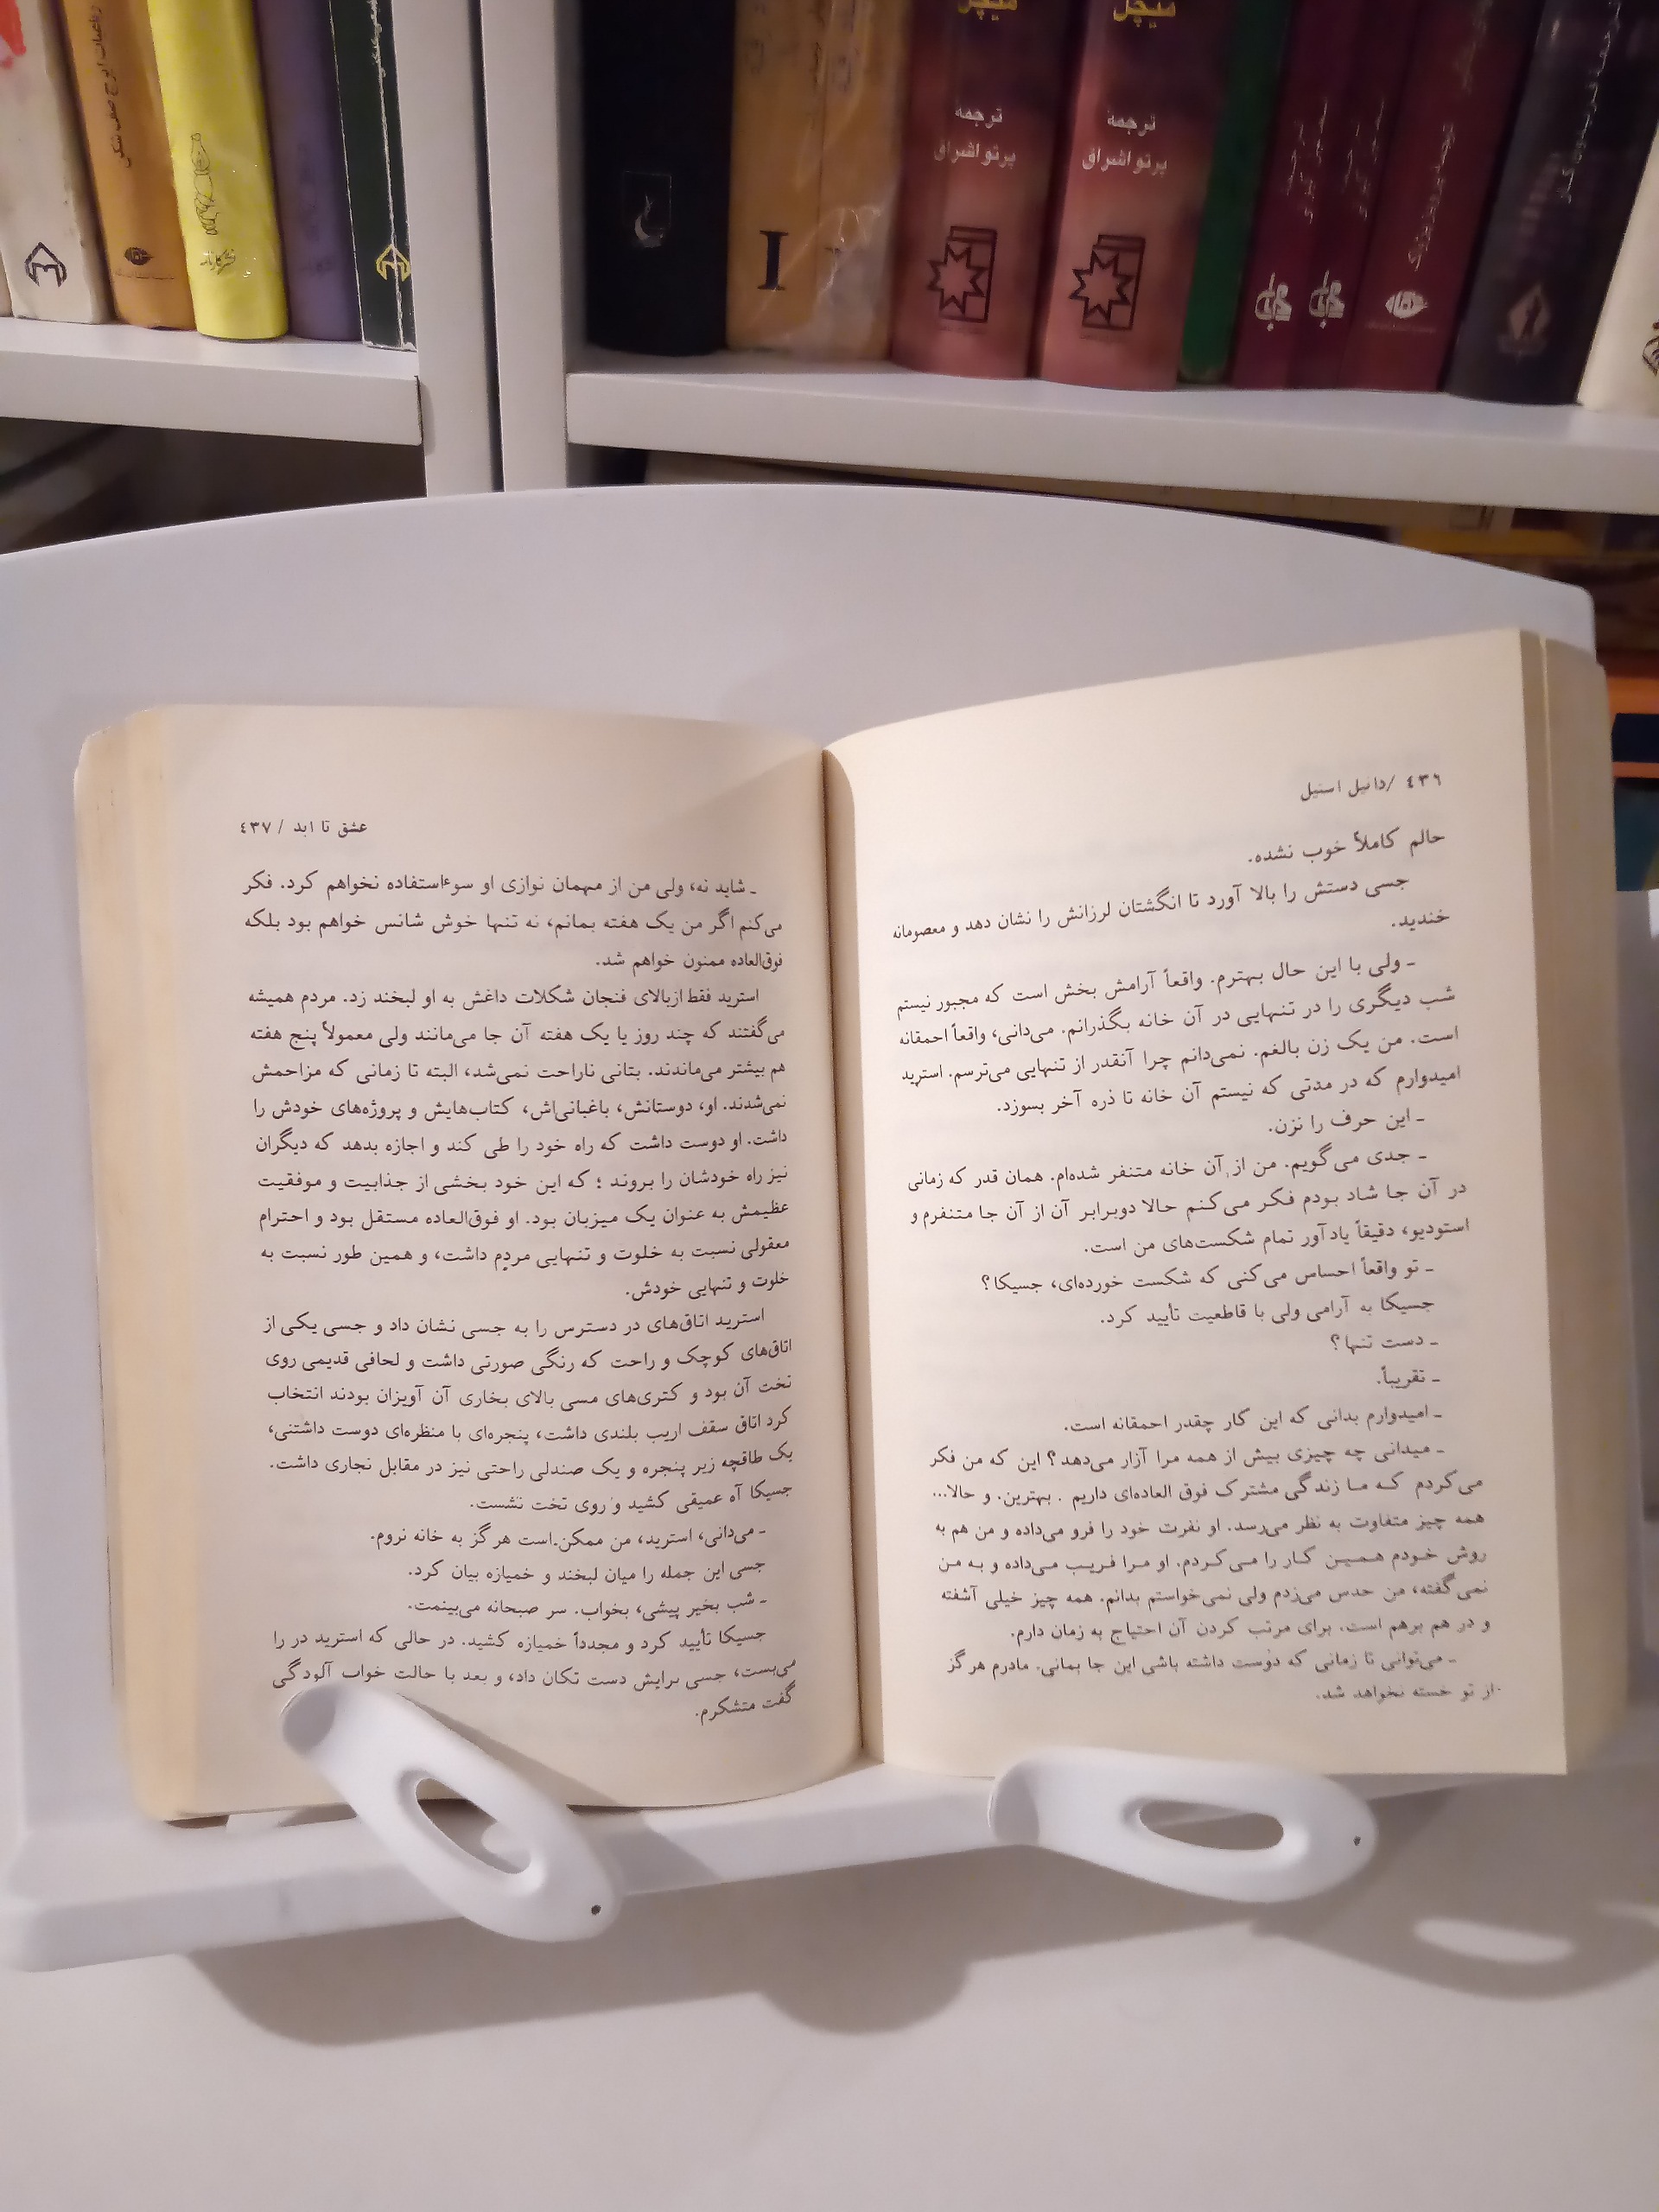 میچل
میچل
ترجمه
پرتو اشراق
ترجمه
پرتو اشراق
I
٤٣٦ /دانیل استیل
حالم کاملاً خوب نشده.
جسی دستش را بالا آورد تا انگشتان لرزانش را نشان دهد و معصومانه
خندید.
ـ ولی با این حال بهترم. واقعاً آرامش بخش است که مجبور نیستم
شب دیگری را در تنهایی در آن خانه بگذرانم. می‌دانی، واقعاً احمقانه
است. من یک زن بالغم. نمی‌دانم چرا آنقدر از تنهایی می‌ترسم. استرید
امیدوارم که در مدتی که نیستم آن خانه تا ذره آخر بسوزد.
ـ این حرف را نزن.
ـ جدی می‌گویم. من از آن خانه متنفر شده‌ام. همان قدر که زمانی
در آن جا شاد بودم فکر می‌کنم حالا دوبرابر آن از آن جا متنفرم و
استودیو، دقیقاً یادآور تمام شکست‌های من است.
ـ تو واقعاً احساس می‌کنی که شکست خورده‌ای، جسیکا؟
جسیکا به آرامی ولی با قاطعیت تأیید کرد.
ـ دست تنها؟
ـ تقریباً.
ـ امیدوارم بدانی که این کار چقدر احمقانه است.
ـ میدانی چه چیزی بیش از همه مرا آزار می‌دهد؟ این که من فکر
می‌کردم که ما زندگی مشترک فوق العاده‌ای داریم . بهترین. و حالا...
همه چیز متفاوت به نظر می‌رسد. او نفرت خود را فرو می‌داده و من هم به
روش خودم همین کار را می‌کردم. او مرا فریب می‌داده و به من
نمی‌گفته، من حدس می‌زدم ولی نمی‌خواستم بدانم. همه چیز خیلی آشفته
و در هم برهم است. برای مرتب کردن آن احتیاج به زمان دارم.
ـ می‌توانی تا زمانی که دوست داشته باشی این جا بمانی. مادرم هرگز
از تو خسته نخواهد شد.
عشق تا ابد / ٤٣٧
ـ شاید نه، ولی من از مهمان نوازی او سوءاستفاده نخواهم کرد. فکر
می‌کنم اگر من یک هفته بمانم، نه تنها خوش شانس خواهم بود بلکه
فوق‌العاده ممنون خواهم شد.
استرید فقط ازبالای فنجان شکلات داغش به او لبخند زد. مردم همیشه
می‌گفتند که چند روز یا یک هفته آن جا می‌مانند ولی معمولاً پنج هفته
هم بیشتر می‌ماندند. بتانی ناراحت نمی‌شد، البته تا زمانی که مزاحمش
نمی‌شدند. او، دوستانش، باغبانی‌اش، کتاب‌هایش و پروژه‌های خودش را
داشت. او دوست داشت که راه خود را طی کند و اجازه بدهد که دیگران
نیز راه خودشان را بروند ؛ که این خود بخشی از جذابیت و موفقیت
عظیمش به عنوان یک میزبان بود. او فوق‌العاده مستقل بود و احترام
معقولی نسبت به خلوت و تنهایی مردم داشت، و همین طور نسبت به
خلوت و تنهایی خودش.
استرید اتاق‌های در دسترس را به جسی نشان داد و جسی یکی از
اتاق‌های کوچک و راحت که رنگی صورتی داشت و لحافی قدیمی روی
تخت آن بود و کتری‌های مسی بالای بخاری آن آویزان بودند انتخاب
کرد اتاق سقف اریب بلندی داشت، پنجره‌ای با منظره‌ای دوست داشتنی،
یک طاقچه زیر پنجره و یک صندلی راحتی نیز در مقابل نجاری داشت.
جسیکا آه عمیقی کشید و روی تخت نشست.
ـ می‌دانی، استرید، من ممکن است هرگز به خانه نروم.
جسی این جمله را میان لبخند و خمیازه بیان کرد.
ـ شب بخیر پیشی، بخواب. سر صبحانه می‌بینمت.
جسیکا تأیید کرد و مجدداً خمیازه کشید. در حالی که استرید در را
می‌بست، جسی برایش دست تکان داد، و بعد با حالت خواب آلودگی
گفت متشکرم.